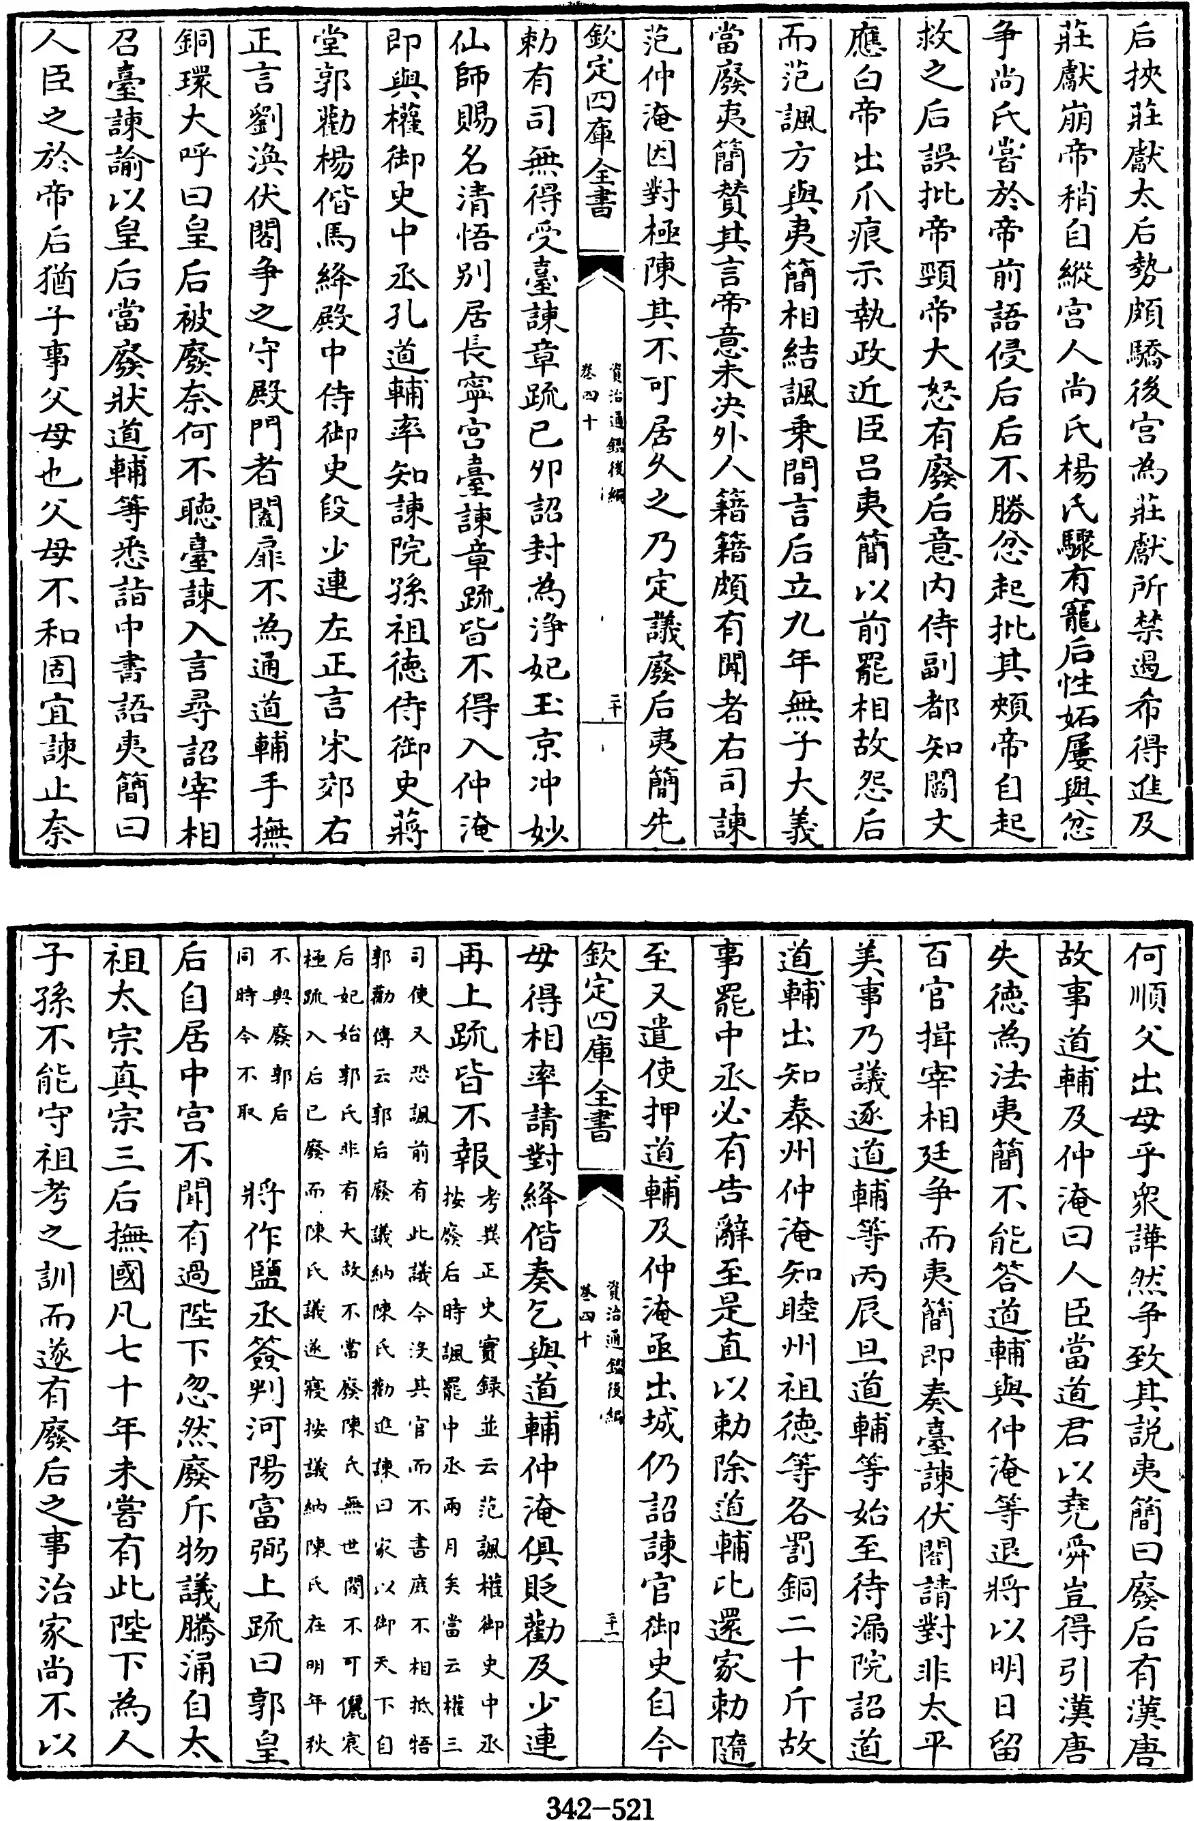 后挾莊獻太后勢頗驕後宫為莊獻所禁遏希得進及
莊獻崩帝稍自縱宫人尚氏楊氏驟有寵后性妬屢與忿
争尚氏嘗於帝前語侵后后不勝忿起批其頰帝自起
救之后誤批帝頸帝大怒有廢后意内侍副都知閻文
應白帝出爪痕示執政近臣吕夷簡以前罷相故怨后
而范諷方與夷簡相結諷乗間言后立九年無子大義
當廢夷簡賛其言帝意未决外人籍籍頗有聞者右司諫
范仲淹因對極陳其不可居乆之乃定議廢后夷簡先
欽定四庫全書
資治通鑑後編
卷四十
二十
勅有司無得受臺諫章疏已卯詔封為浄妃玉京冲妙
仙師賜名清悟别居長寧宫臺諫章疏皆不得入仲淹
即與權御史中丞孔道輔率知諫院孫祖徳侍御史蔣
堂郭勸楊偕馬絳殿中侍御史段少連左正言宋郊右
正言劉渙伏閤争之守殿門者闔扉不為通道輔手撫
銅環大呼曰皇后被廢奈何不聴臺諫入言尋詔宰相
召臺諫諭以皇后當廢狀道輔等悉詣中書語夷簡曰
人臣之於帝后猶子事父母也父母不和固宜諫止奈
何順父出母乎衆譁然争致其説夷簡曰廢后有漢唐
故事道輔及仲淹曰人臣當道君以堯舜豈得引漢唐
失徳為法夷簡不能答道輔與仲淹等退將以明日留
百官揖宰相廷争而夷簡即奏臺諫伏閤請對非太平
美事乃議逐道輔等丙辰旦道輔等始至待漏院詔道
道輔出知泰州仲淹知睦州祖徳等各罰銅二十斤故
事罷中丞必有告辭至是直以勅除道輔比還家勅隨
至又遣使押道輔及仲淹亟出城仍詔諫官御史自今
欽定四庫全書
資治通鑑後編
卷四十
二十一
毋得相率請對絳偕奏乞與道輔仲淹俱貶勸及少連
再上疏皆不報考異正史實録並云范諷權御史中丞
按廢后時諷罷中丞兩月矣當云權三
司使又恐諷前有此議今沒其官而不書庶不相抵牾
郭勸傳云郭后廢議納陳氏勸進諫曰家以御天下自
后妃始郭氏非有大故不當廢陳氏無世閥不可儷宸
極疏入后已廢而陳氏議遂寢按議納陳氏在明年秋
不與廢郭后
同時今不取
將作監丞簽判河陽富弼上疏曰郭皇
后自居中宫不聞有過陛下忽然廢斥物議騰涌自太
祖太宗真宗三后撫國凡七十年未嘗有此陛下為人
子孫不能守祖考之訓而遂有廢后之事治家尚不以
342-521